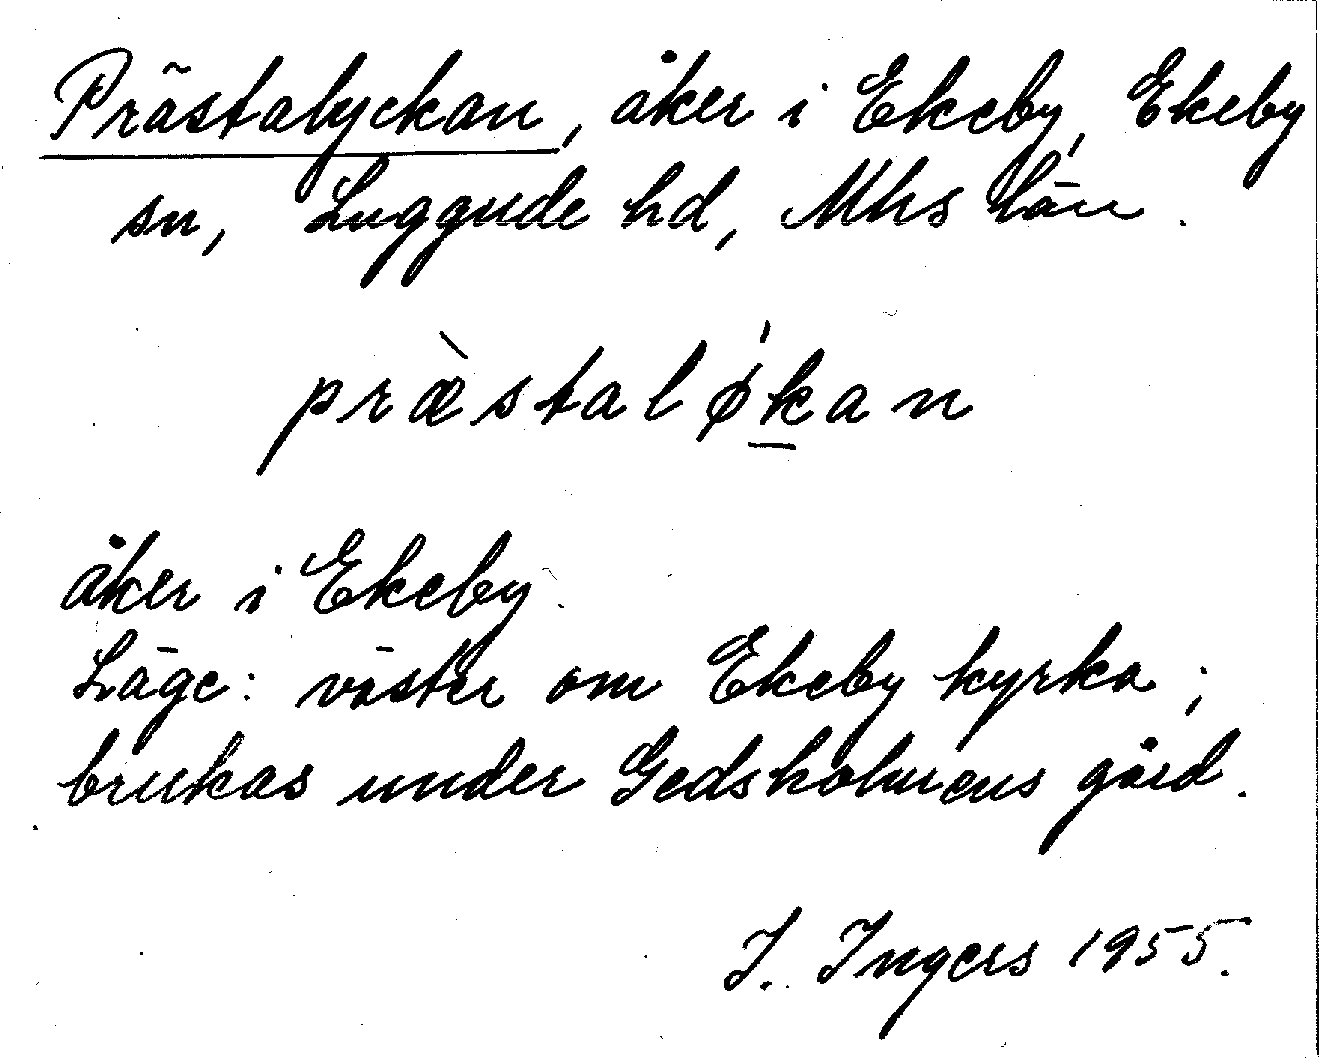 Prästalyckan, åker i Ekeby, Ekeby
sn, Luggude hd, Mhs län.
præ̀staløḱan
åker i Ekeby.
Läge: väster om Ekeby kyrka;
brukas under Gedsholmens gård.
I. Ingers 1955.